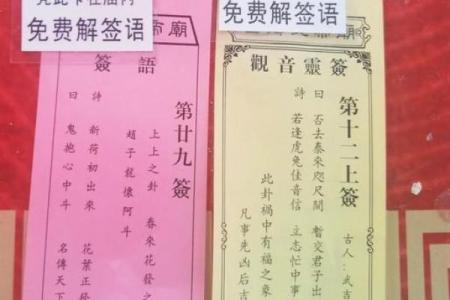 凭此卡在庙内
免费解签语
帝廟
簽語
第廿九簽
上上之卦 春來花發之
趙子龍懷阿斗
詩曰 新荷初出來 花葉正發
鬼抱心中斗 名傳天下
免费解签语
帝廟
觀音靈簽
第十二上簽
古人：武吉
詩曰 否去泰來咫尺間 暫交君子出
若逢虎兔佳音信 立志忙中事
此卦禍中有福之象
凡事先凶后吉